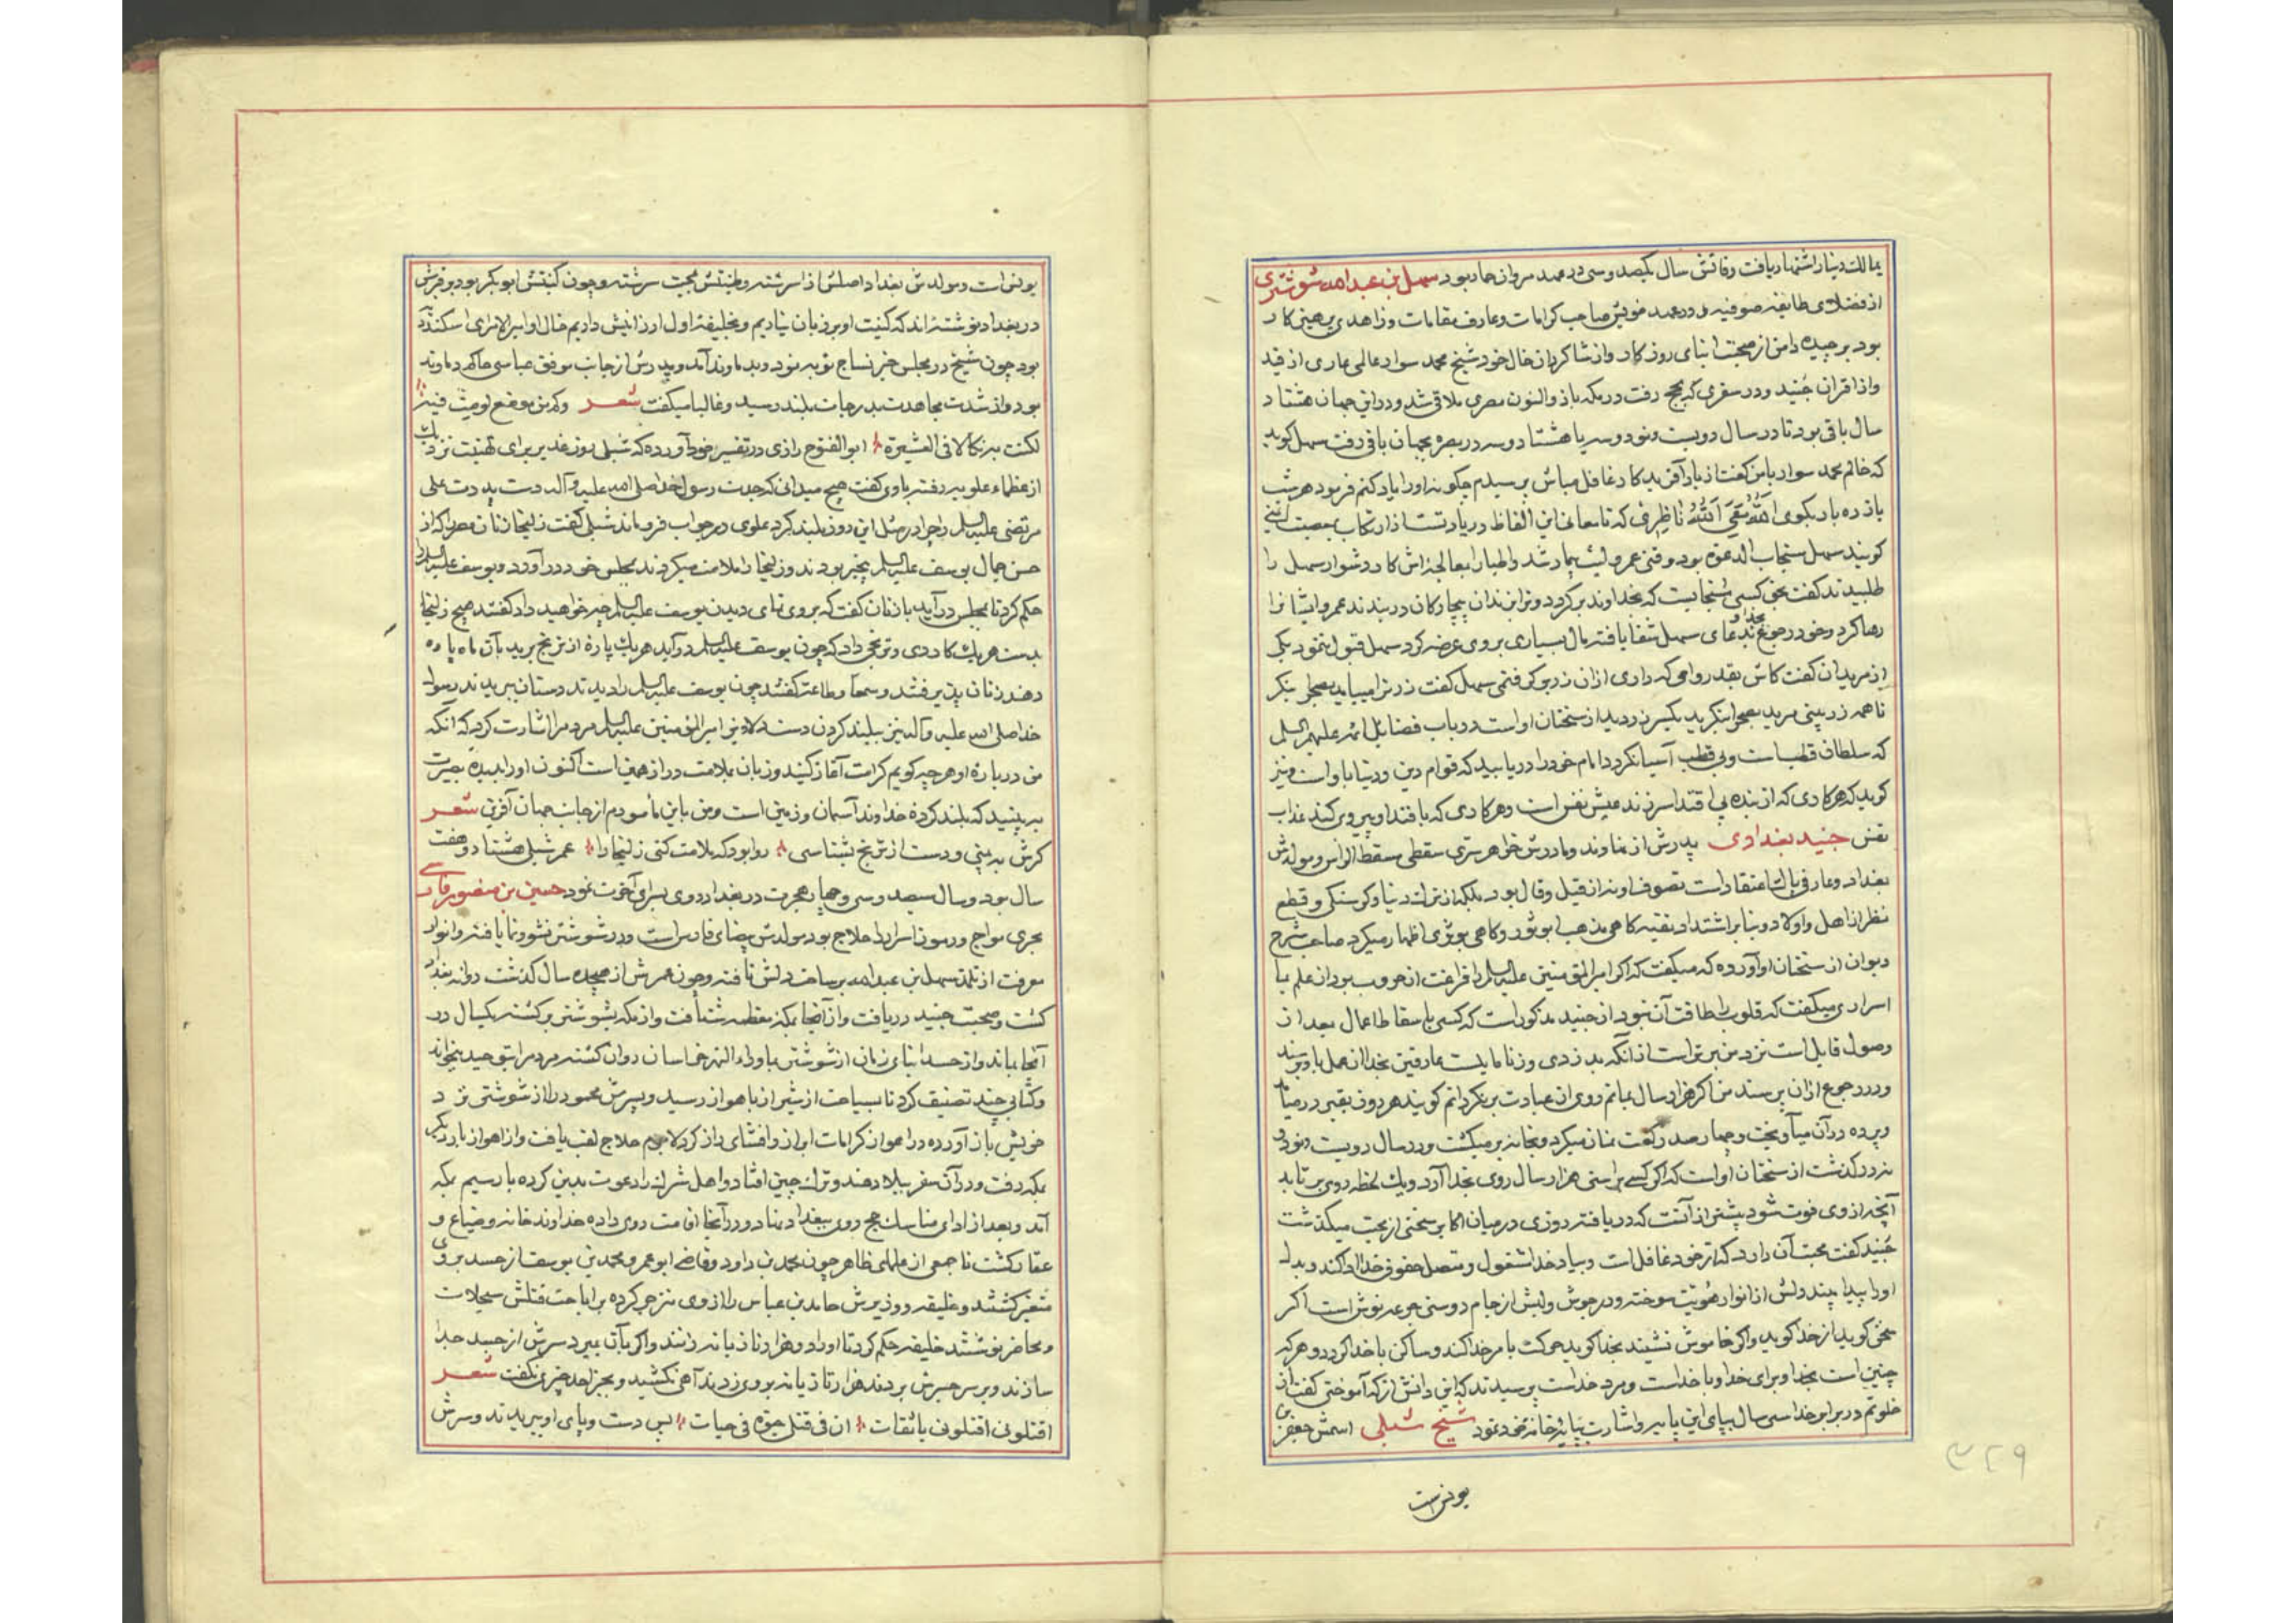 بمالك دینار اشتهار یافت وفاتش سال یکصد و سی در عهد مروان حمار بود سهل بن عبد الله شوشتری
از فضلای طایفه صوفیه و در عهد خویش صاحب کرامات و عارف مقامات و زاهدی بر همین کار
بود برچیده دامن از صحبت ابنای روزکار و از شاکردان خال خود شیخ محمد سوار عالمی عاری از قید
و از اقران جنید و در سفری که بحج رفت در مکه باذوالنون مصری ملاقی شد و در این جهان هشتاد
سال باقی بود تا در سال دویست و نود و سه یا هشتاد و سه در بصره بجهان باقی رفت سهل کوید
که خالم محمد سوار با من کفت از یاد آفریدکار غافل مباش پرسیدم چکونه او را یاد کنم فرمود هر شب
یازده بار بکوی الله معی الله ناظری که تا معانی این الفاظ در یاد تست از ارتکاب معصیت ایمنی
کویند سهل مستجاب الدعوه بود وقتی عمرو لیث بیمار شد و اطبا را معالجه‌اش کار دشوار سهل را
طلبیدند کفت بحق کسی مستجابست که بخداوند برکردد و ترا بزندان بیچارکان دربندند عمرو ایشانرا
رها کرد و خود رجوع بخدا و بدعای سهل شفا یافته مال بسیاری بر وی عرضه کرد سهل قبول ننمود یکی
از مریدان کفت کاش بقدر وامی که داری از آن زر بر می کرفتی سهل کفت زر ترا میباید بصحرا بنکر
تا همه زر بینی مرید بصحرا بنکرید یکسر زر دید از سخنان اوست در باب فضایل ائمه علیهم السلم
که سلطان قطبست و بی قطب آسیا نکردد امام خود را دریابید که قوام دین و دنیا باو است و نیز
کوید که هر کاری که از بنده بی اقتدا سر زند عیش نفس است و هر کاری که با قتدا و پیروی کند عذاب
نفس جنید بغدادی پدرش از نهاوند و مادرش خواهر سری سقطی مسقط الراس و مولدش
بغداد و عارفی پاك اعتقاد است تصوف او نه از قیل و قال بود بلکه از ترك دنیا و کرسنکی و قطع
نظر از اهل و اولاد و بنا بر اشتداد تقیه کاهی مذهب ابوثور و کاهی ثوری اظهار میکرد صاحب شرح
دیوان از سخنان او آورده که میکفت که اکر امیرالمؤمنین علیه السلم را فراغت از حروب بود از علم بما
اسراری میکفت که قلوب را طاقت آن نبود از جنید مذکور است که کسی باسقاط اعمال بعد از
وصول قایل است نزد من بدتر است از آنکه بدزدی و زنا مایلست عارفین بخدا از عمل باو رسند
و در رجوع از آن پرسند من اکر هزار سال بمانم روی از عبادت برنکردانم کویند هر روز بقبر در میان
و پرده در آن میآویخت و چهار صد رکعت نماز میکرد و بخانه برمیکشت و در سال دویست و نود و
نه درکذشت از سخنان اوست که اکر کسی براستی هزار سال روی بخدا آورد و یك لحظه روی برتابد
آنچه از وی فوت شود بیشتر از آنست که دریافته روزی در میان اکابر سخنی از محبت میکذشت
جنید کفت محبت آن دارد که از خود غافل است و بیاد خدا مشغول و متصل حقوق خدا را ادا کند و بدل
او را پیدا بیند دلش از انوار هویت سوخته و در جوش و لبش از جام دوستی جرعه نوش است اکر
سخنی کوید از خدا کوید و اکر خاموش نشیند بخدا کوید حرکت بامر خدا کند و ساکن با خدا کردد و هر که
چنین است بخدا و برای خدا و با خداست و مرد خداست پرسیدند که این دانش از که آموختی کفت از
خلوتم در برابر خدا سی سال بپای این پایه و اشارت بپایه خانه خود نمود شیخ شبلی اسمش جعفر بن
یونس است
۳۲۹
یونس است و مولدش بغداد اصلش از اسرشته و طینتش بمحبت سرشته و چون کنیتش ابو بکر بود بر قبرش
در بغداد نوشته‌اند که کنیت او بر زبان نیاریم و بخلیفه اول ارزانیش داریم خال او امیر الامرای اسکندریه
بود چون شیخ در مجلس خیر نساج توبه نمود و بدماوند آمد و پدرش از جانب موفق عباسی حاکم دماوند
بود و از شدت مجاهدت بدرجات بلند رسید و غالبا میکفت شعر وکم من موضع لومت فیه
لکنت به نکالا فی العشیره ابوالفتوح رازی در تفسیر خود آورده که شبلی روز غدیر برای تهنیت نزد یك
از عظماء علویه رفته باوی کفت هیچ میدانی که جدت رسول خدا صلی الله علیه و آله دست پدرت علی
مرتضی علیه السلم را چرا در مثل این روز بلند کرد علوی در جواب فرو ماند شبلی کفت زلیخا زنان مصر را که از
حسن جمال یوسف علیه السلم بیخبر بودند و زلیخا را ملامت میکردند بمجلس خود در آورد و یوسف علیه السلم را
حکم کرد تا بمجلس درآید با زنان کفت که بروی نمای دیدن یوسف علیه السلم چه خواهید داد کفتند هیچ زلیخا
بدست هر یك کاردی و ترنجی داد که چون یوسف علیه السلم درآید هر یك پاره از ترنج برید بآن ماه پاره
دهند زنان پذیرفتند و سمعا و طاعة کفتند چون یوسف علیه السلم را دیدند دستان ببریدند رسول
خدا صلی الله علیه و آله نیز ببلند کردن دست دلاویز امیر المؤمنین علیه السلم مردم را اشارت کرد که آنکه
من درباره او هر چه کویم کرامت آغاز کنید و زبان بملامت دراز همین است اکنون او را بدیده بصیرت
به بینید که بلند کرده خداوند آسمان و زمین است و من باین مأمورم از جانب جهان آفرین شعر
کرش به بینی و دست از ترنج بشناسی روا بود که ملامت کنی زلیخا را عمر شبلی هشتاد و هفت
سال بود و سال سیصد و سی و چهار هجرت در بغداد روی بسرای آخرت نمود حسین بن منصور فارسی
بحری مواج و رموز اسرار را حلاج بود مولدش بیضای فارس است و در شوشتر نشو و نما یافته و انوار
معرفت از تلمذ سهل بن عبد الله بر ساحت دلش تافته و چون عمرش از هیجده سال کذشت روانه بغداد
کشت و صحبت جنید دریافت و از آنجا بمکه معظمه شتافت و از مکه بشوشتر برکشته یکسال در
آنجا بماند و از حسد ابنای زمان از شوشتر بماوراء النهر خراسان روان کشته مردم را بتوحید میخواند
و کتابی چند تصنیف کرد تا بسیاحت از شیراز باهواز رسید و پسرش محمود را از شوشتر نزد
خویش باز آورده در اهواز کرامات ابراز و افشای راز کرد لاجرم حلاج لقب یافت و از اهواز بار دیکر
بمکه رفت و در آن سفر ببلاد هند و ترك و چین افتاد و اهل شرك را دعوت بدین کرده بار سیم بمکه
آمد و بعد از ادای مناسك حج روی ببغداد نهاد و در آنجا اقامت روی داده خداوند خانه و ضیاع و
عقار کشت تا جمعی از علمای ظاهر چون محمد بن داود و قاضی ابو عمرو محمد بن یوسف از حسد بر وی
متغیر کشتند و خلیفه و وزیرش حامد بن عباس را از وی منزجر کرده بر اباحت قتلش سجلات
و محاضر نوشتند خلیفه حکم کرد تا او را دو هزار تازیانه زنند و اکر بآن نمیرد سرش از جسد جدا
سازند و بر سر جسرش بردند هزار تازیانه بر وی زدند آهی نکشید و بجز احد چیزی نکفت شعر
اقتلونی اقتلونی یا ثقات ان فی قتلی حیوة فی حیات پس دست و پای او ببریدند و سرش